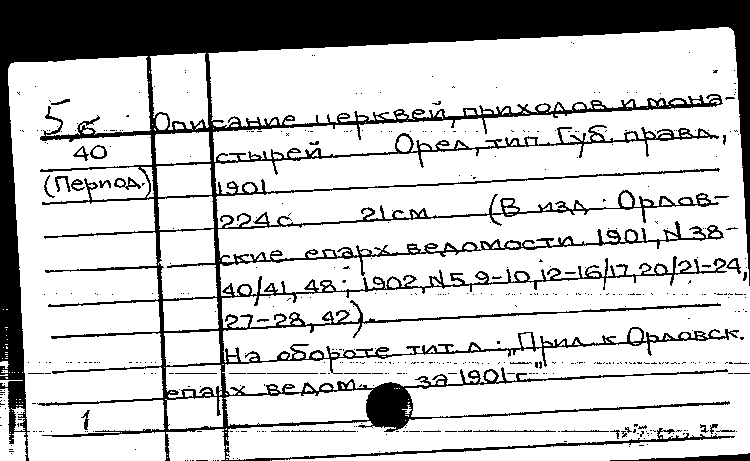 5б Описание церквей, приходов и мона-
40 стырей Орел, тип. Губ. правл.,
(Период.) 1901
224 с. 21 см. (В изд.: Орлов-
ские епарх. ведомости. 1901, N 38-
40/41, 48; 1902, N5, 9-10, 12-16/17, 20/21-24,
27-28, 42).
На обороте тит. л.: „Прил. к Орловск.
епарх. ведом. за 1901 г."
1